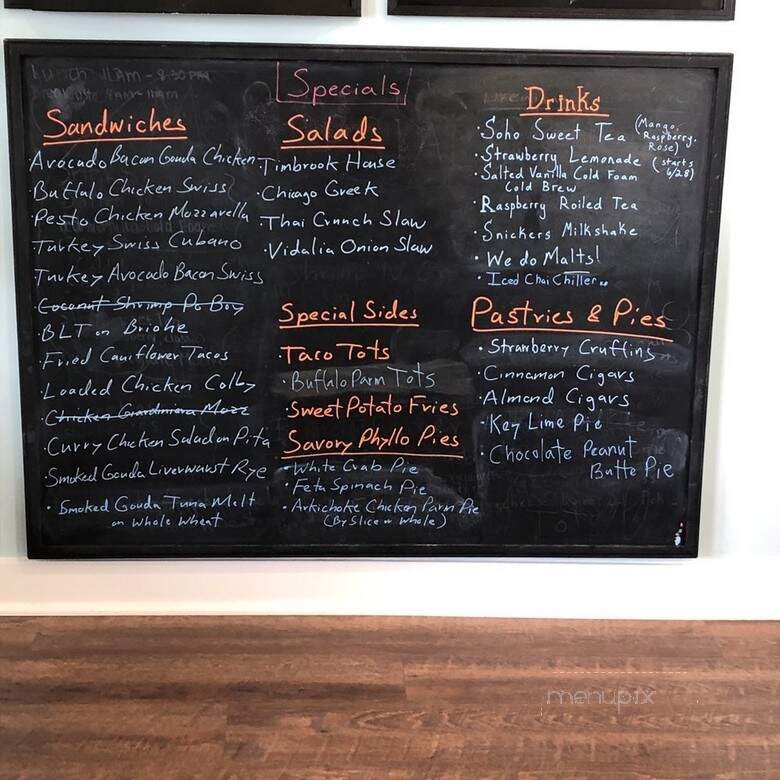 Lunch 11AM - 8:30 PM
Specials
Sandwiches
Avocado Bacon Gouda Chicken
Buffalo Chicken Swiss
Pesto Chicken Mozzarella
Turkey Swiss Cubano
Turkey Avocado Bacon Swiss
Coconut Shrimp Po Boy
BLT on Brioche
Fried Cauliflower Tacos
Loaded Chicken Colby
Chicken Grandmera Mozz
Curry Chicken Salad on Pita
Smoked Gouda Liverwurst Rye
Smoked Gouda Tuna Melt
on whole wheat
Salads
Timbrook House
Chicago Greek
Thai Crunch Slaw
Vidalia Onion Slaw
Special Sides
Taco Tots
Buffalo Parm Tots
Sweet Potato Fries
Savory Phyllo Pies
White Crab Pie
Feta Spinach Pie
Artichoke Chicken Parm Pie
(By Slice or Whole)
Drinks
Soho Sweet Tea (Mango, Raspberry, Rose)
Strawberry Lemonade (starts 6/28)
Salted Vanilla Cold Foam
Cold Brew
Raspberry Roiled Tea
Snickers Milkshake
We do Malts!
Iced Chai Chiller
Pastries & Pies
Strawberry Cruffins
Cinnamon Cigars
Almond Cigars
Key Lime Pie
Chocolate Peanut
Butte Pie
menupix